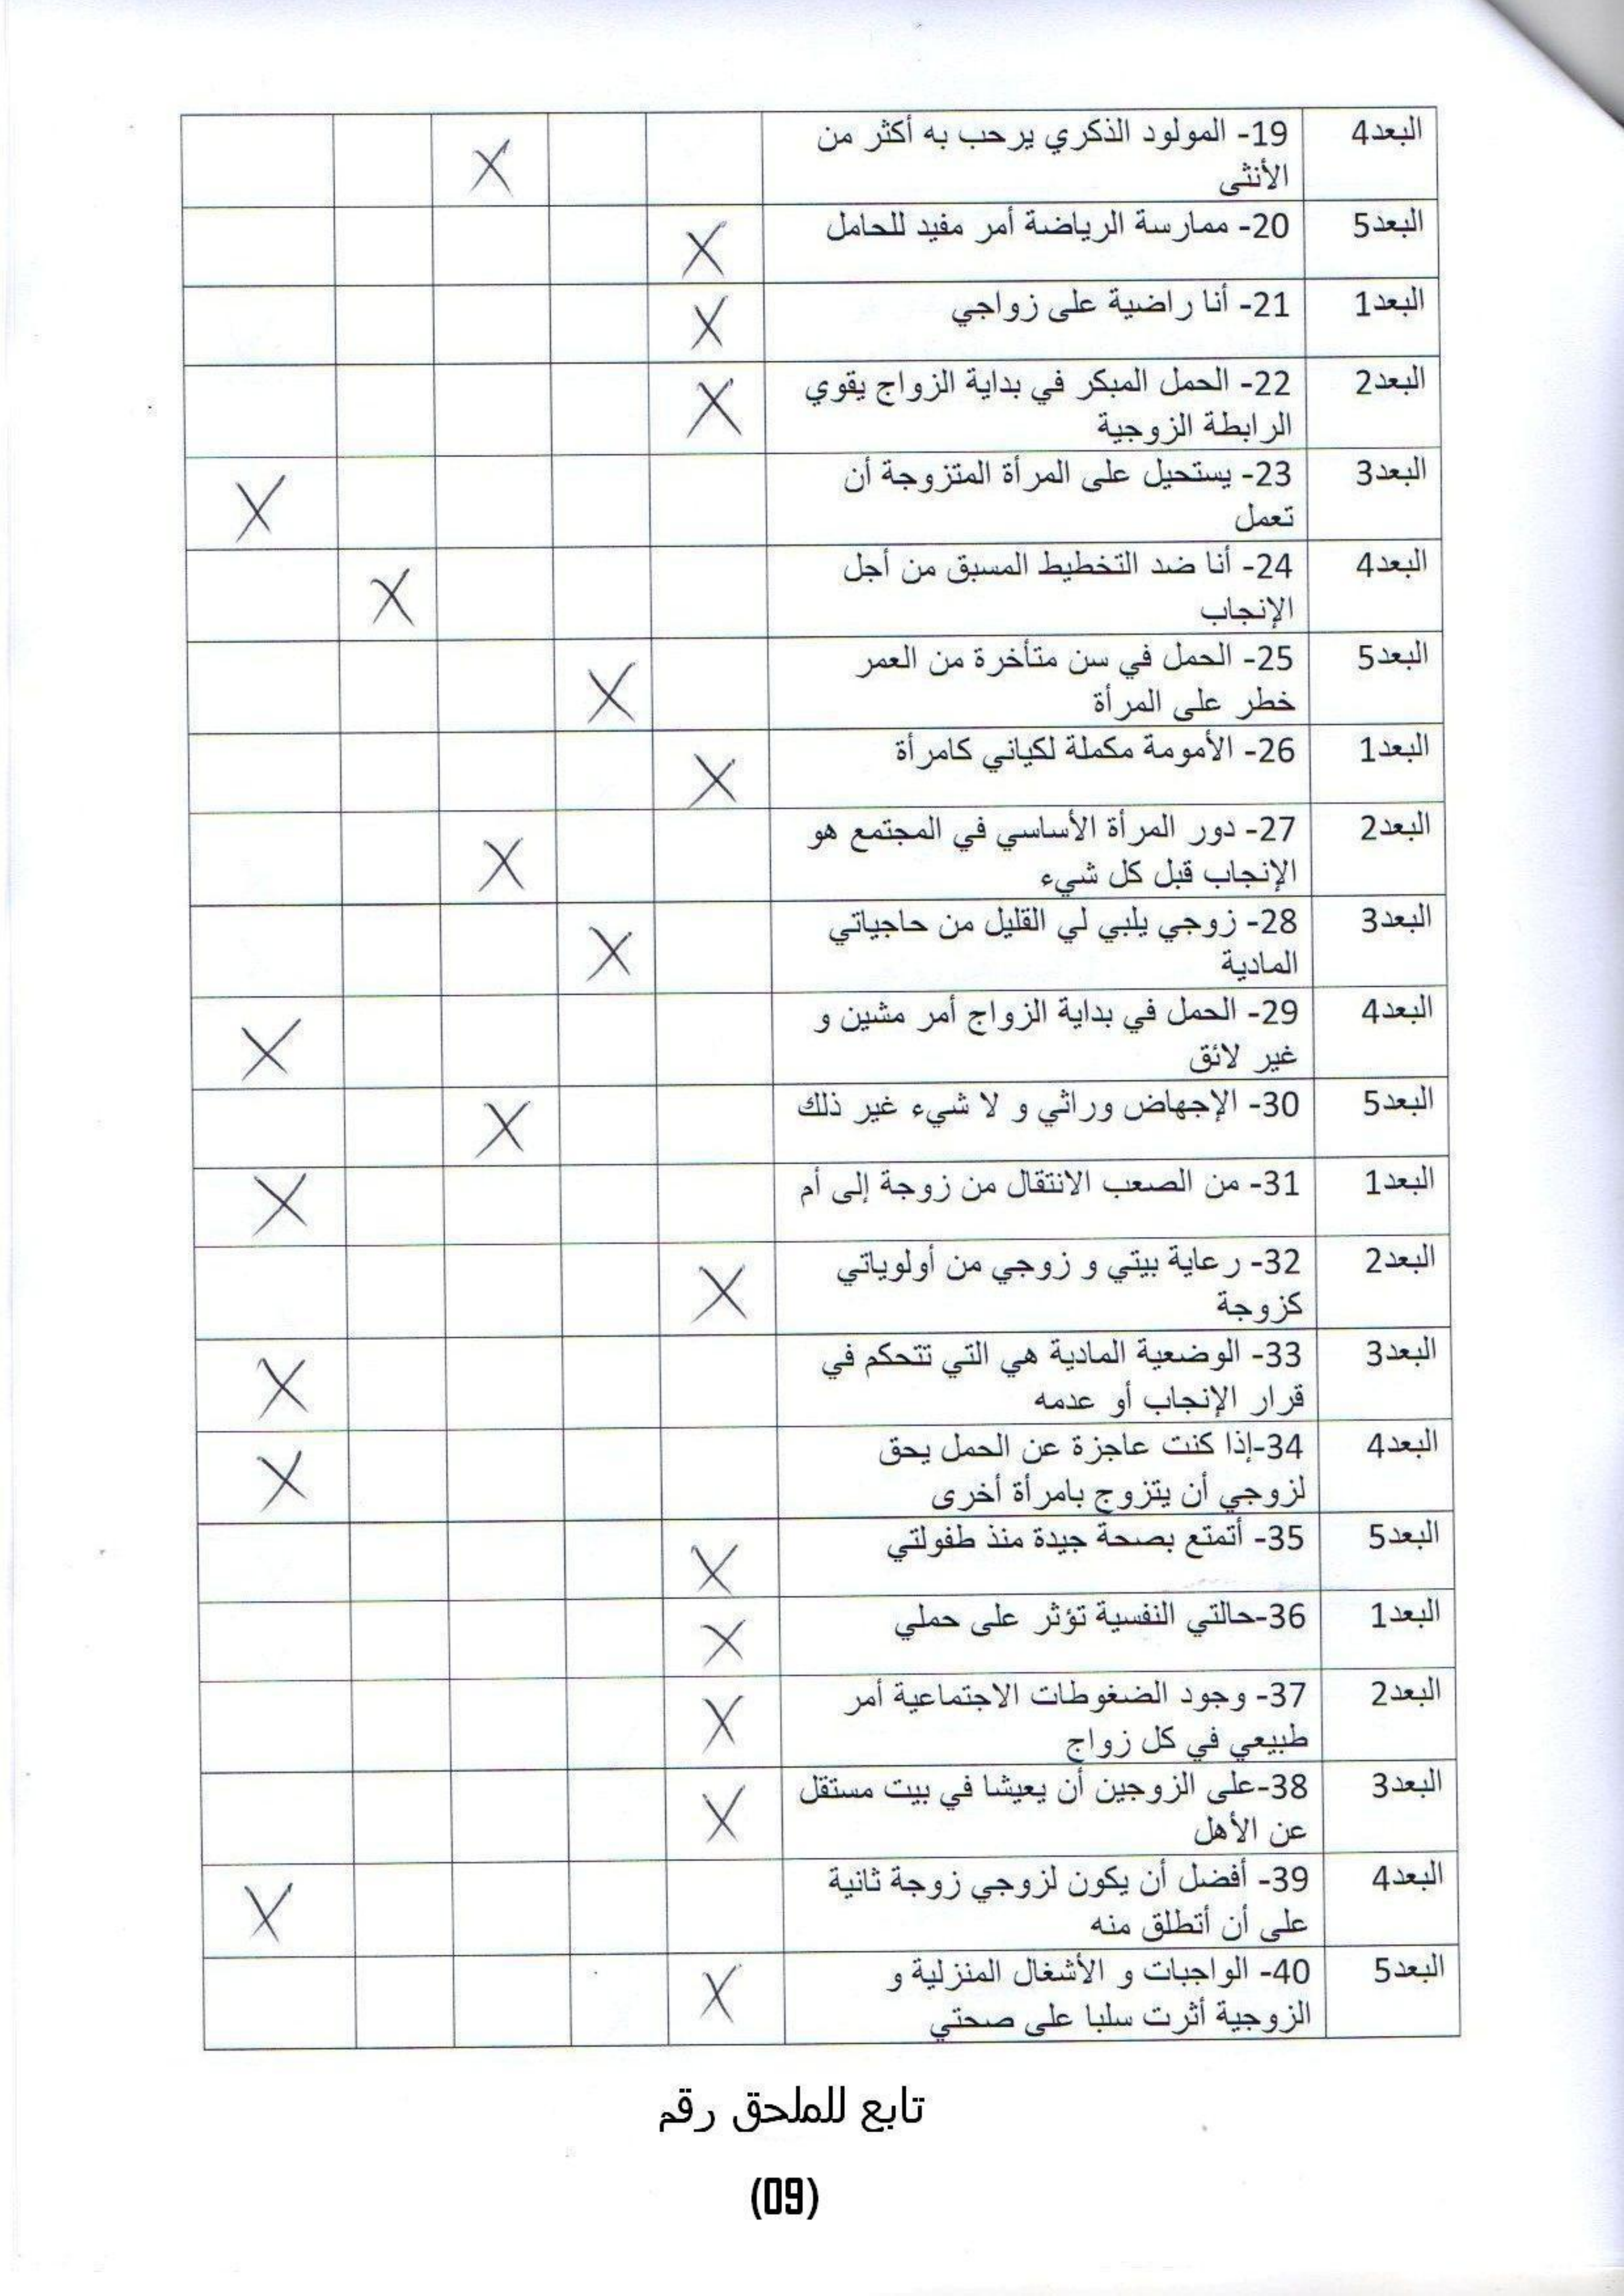 البعد4 19- المولود الذكري يرحب به أكثر من X
الأنثى
البعد5 20- ممارسة الرياضة أمر مفيد للحامل X
البعد1 21- أنا راضية على زواجي X
البعد2 22- الحمل المبكر في بداية الزواج يقوي X
الرابطة الزوجية
البعد3 23- يستحيل على المرأة المتزوجة أن X
تعمل
البعد4 24- أنا ضد التخطيط المسبق من أجل X
الإنجاب
البعد5 25- الحمل في سن متأخرة من العمر X
خطر على المرأة
البعد1 26- الأمومة مكملة لكياني كامرأة X
البعد2 27- دور المرأة الأساسي في المجتمع هو X
الإنجاب قبل كل شيء
البعد3 28- زوجي يلبي لي القليل من حاجياتي X
المادية
البعد4 29- الحمل في بداية الزواج أمر مشين و X
غير لائق
البعد5 30- الإجهاض وراثي و لا شيء غير ذلك X
البعد1 31- من الصعب الانتقال من زوجة إلى أم X
البعد2 32- رعاية بيتي و زوجي من أولوياتي X
كزوجة
البعد3 33- الوضعية المادية هي التي تتحكم في X
قرار الإنجاب أو عدمه
البعد4 34-إذا كنت عاجزة عن الحمل يحق X
لزوجي أن يتزوج بامرأة أخرى
البعد5 35- أتمتع بصحة جيدة منذ طفولتي X
البعد1 36-حالتي النفسية تؤثر على حملي X
البعد2 37- وجود الضغوطات الاجتماعية أمر X
طبيعي في كل زواج
البعد3 38-على الزوجين أن يعيشا في بيت مستقل X
عن الأهل
البعد4 39- أفضل أن يكون لزوجي زوجة ثانية X
على أن أتطلق منه
البعد5 40- الواجبات و الأشغال المنزلية و X
الزوجية أثرت سلبا على صحتي
تابع للملحق رقم
(09)